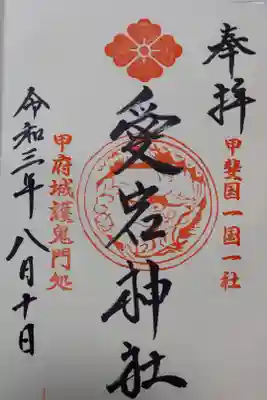 奉拝
甲斐国一国一社
愛宕神社
甲府城護鬼門処
令和三年八月十日